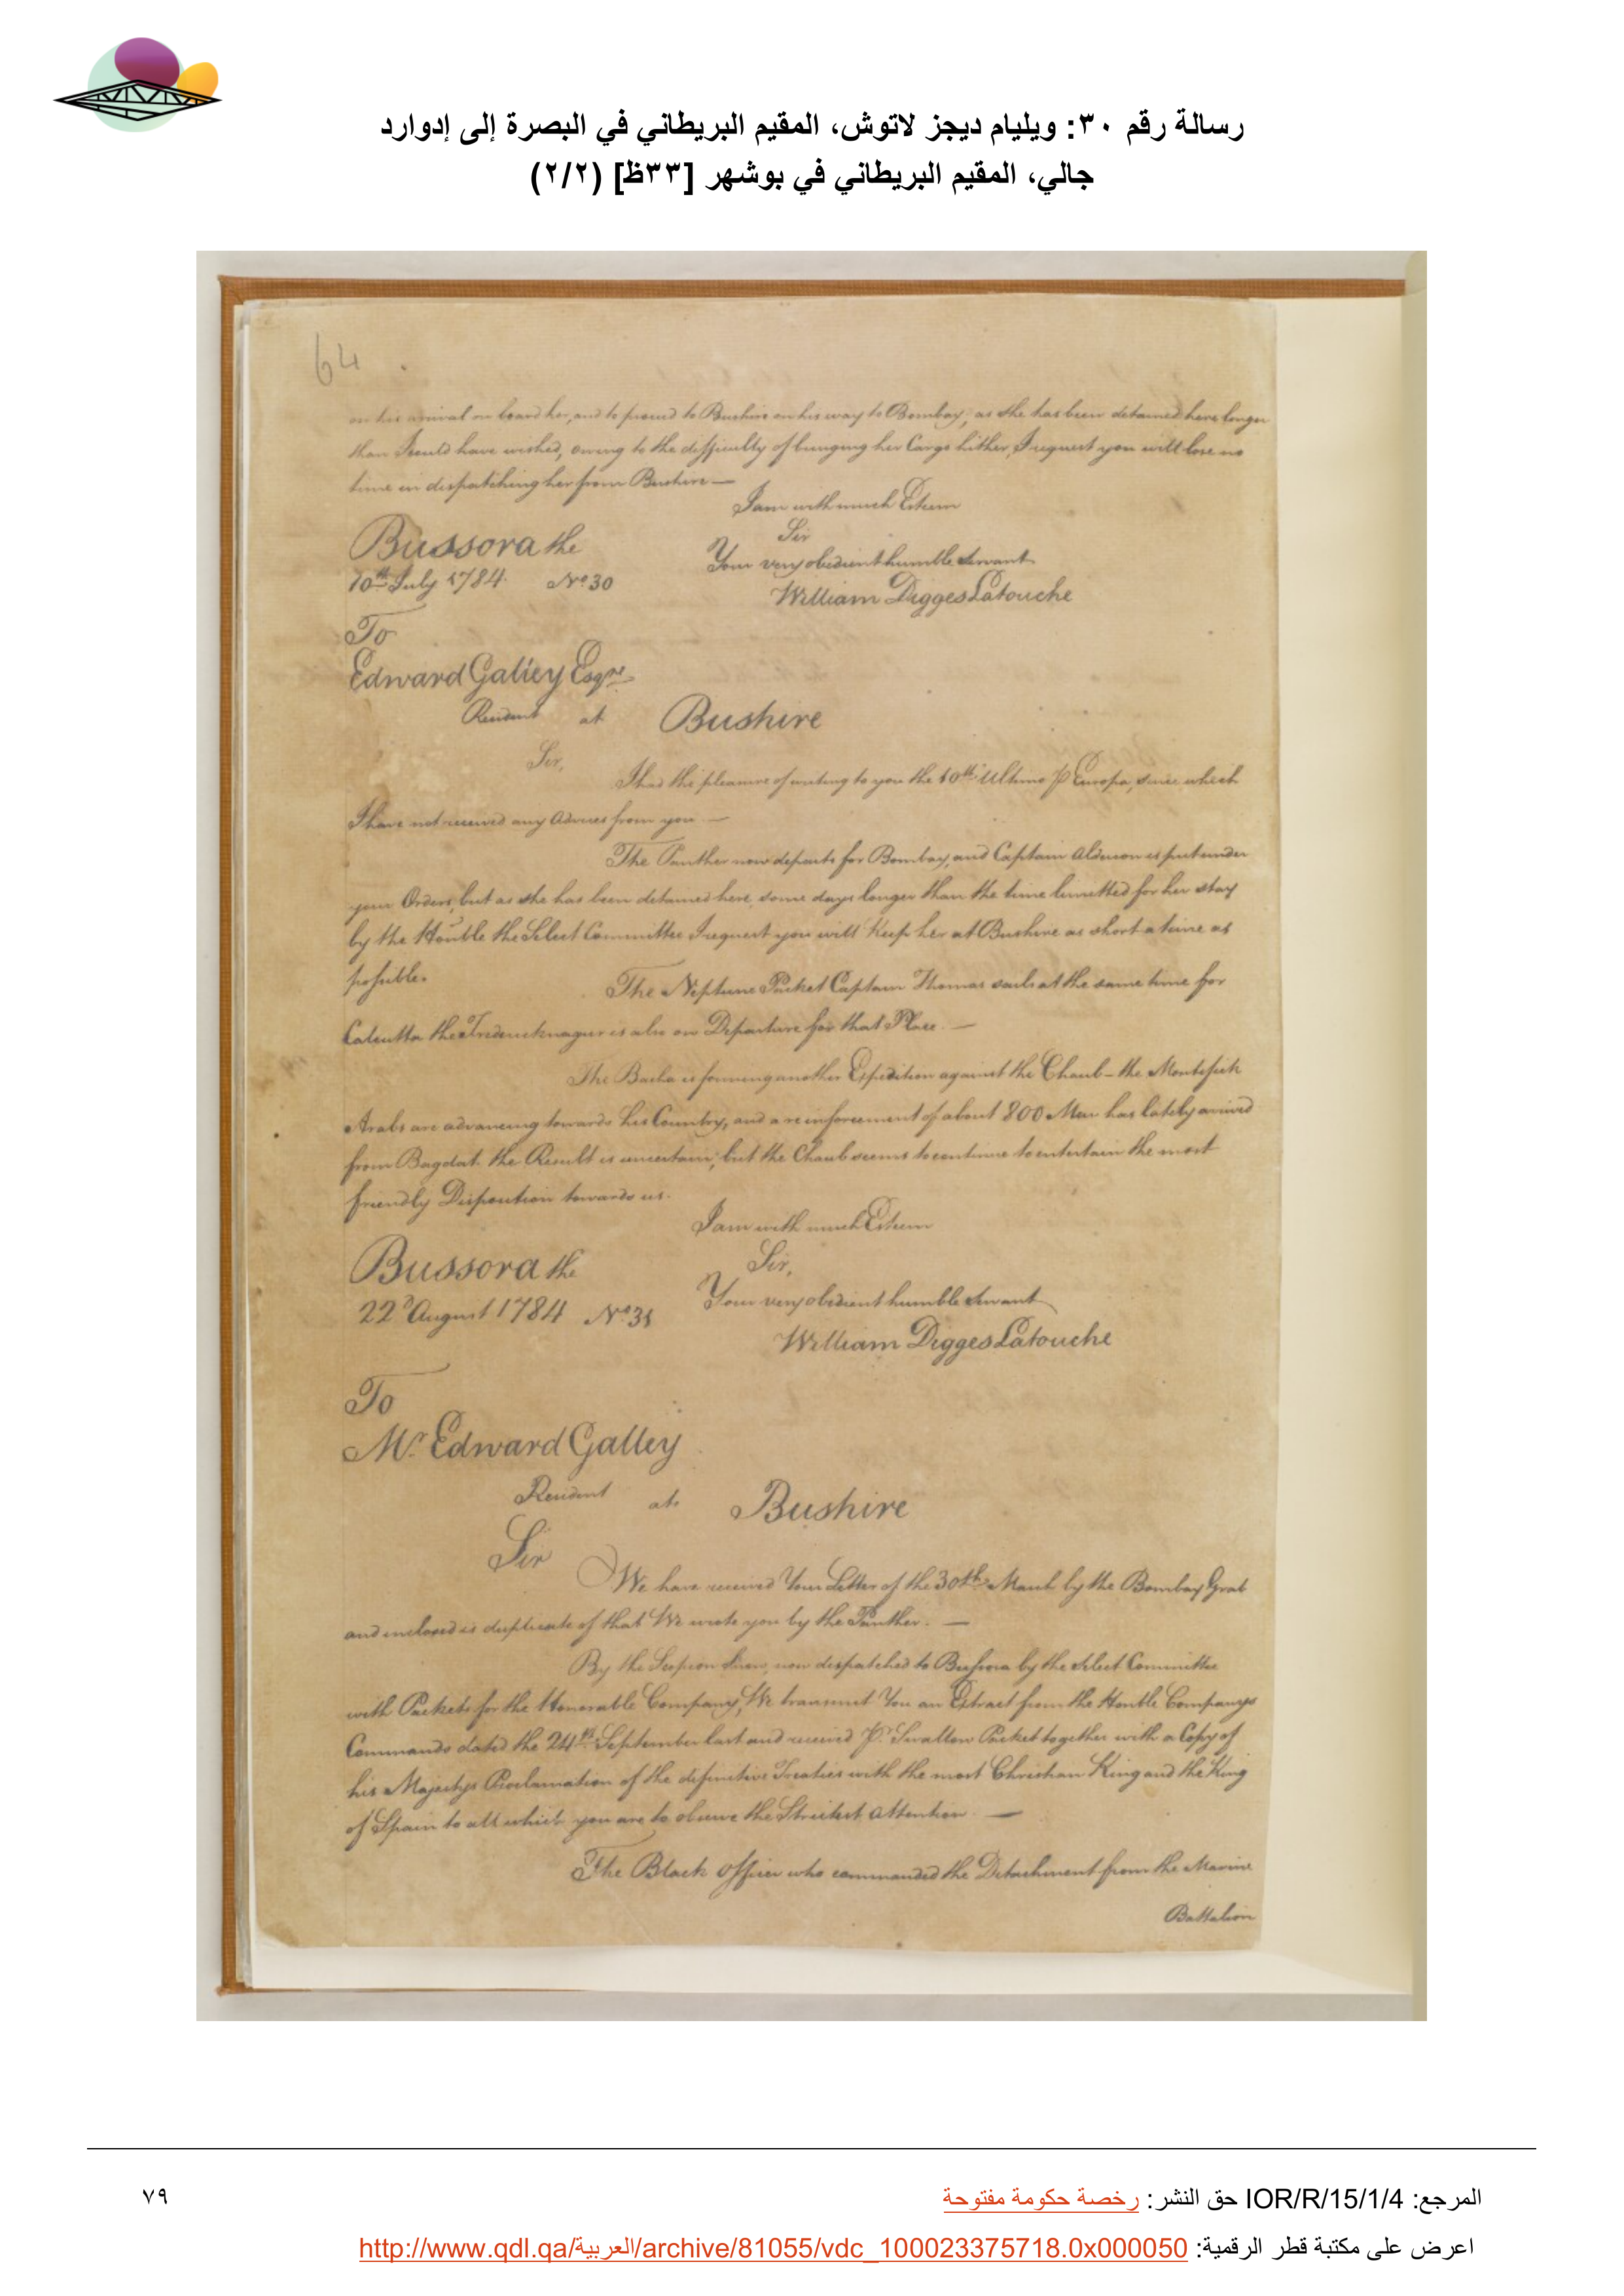 رسالة رقم ٣٠: ويليام ديجز لاتوش، المقيم البريطاني في البصرة إلى إدوارد
جالي، المقيم البريطاني في بوشهر [٣٣ظ] (٢/٢)
64
on his arrival on board her, and to proceed to Bushire on his way to Bombay; as she has been detained here longer
than I could have wished, owing to the difficulty of bringing her Cargo hither, I request you will lose no
time in dispatching her from Bushire —
I am with much Esteem
Sir
Bussora the
Your very obedient humble Servant
10th July 1784. No 30
William Digges Latouche
To
Edward Galley Esqre
Resident at Bushire
Sir,
I had the pleasure of writing to you the 10th Ultimo P Europa, since which
I have not received any Advices from you. —
The Panther now departs for Bombay, and Captain Alderson is put under
your Orders, but as she has been detained here, some days longer than the time limitted for her stay
by the Honble the Select Committee I request you will keep her at Bushire as short a time as
possible.
The Neptune Packet Captain Thomas sails at the same time for
Calcutta the Fredericknagur is also on Departure for that Place. —
The Bacha is forming another Expedition against the Chaub - the Montefick
Arabs are advancing towards his Country, and a reinforcement of about 800 Men has lately arrived
from Bagdat. the Result is uncertain; but the Chaub seems to continue to entertain the most
friendly Disposition towards us.
I am with much Esteem
Sir,
Bussora the
Your very obedient humble Servant
22d August 1784 No 31
William Digges Latouche
To
Mr Edward Galley
Resident at Bushire
Sir
We have received Your Letter of the 30th March by the Bombay Grab
and inclosed is duplicate of that We wrote you by the Panther. —
By the Scorpion Snow, now dispatched to Bussora by the Select Committee
with Packets for the Honorable Company, We transmit You an Extract from the Honble Companys
Commands dated the 24th September last and received P. Swallow Packet together with a Copy of
his Majestys Proclamation of the definitive Treaties with the most Christian King and the King
of Spain to all which you are to observe the Strictest attention. —
The Black officer who commanded the Detachment from the Marine
Battalion
المرجع: IOR/R/15/1/4 حق النشر: رخصة حكومة مفتوحة
٧٩
اعرض على مكتبة قطر الرقمية: http://www.qdl.qa/العربية/archive/81055/vdc_100023375718.0x000050